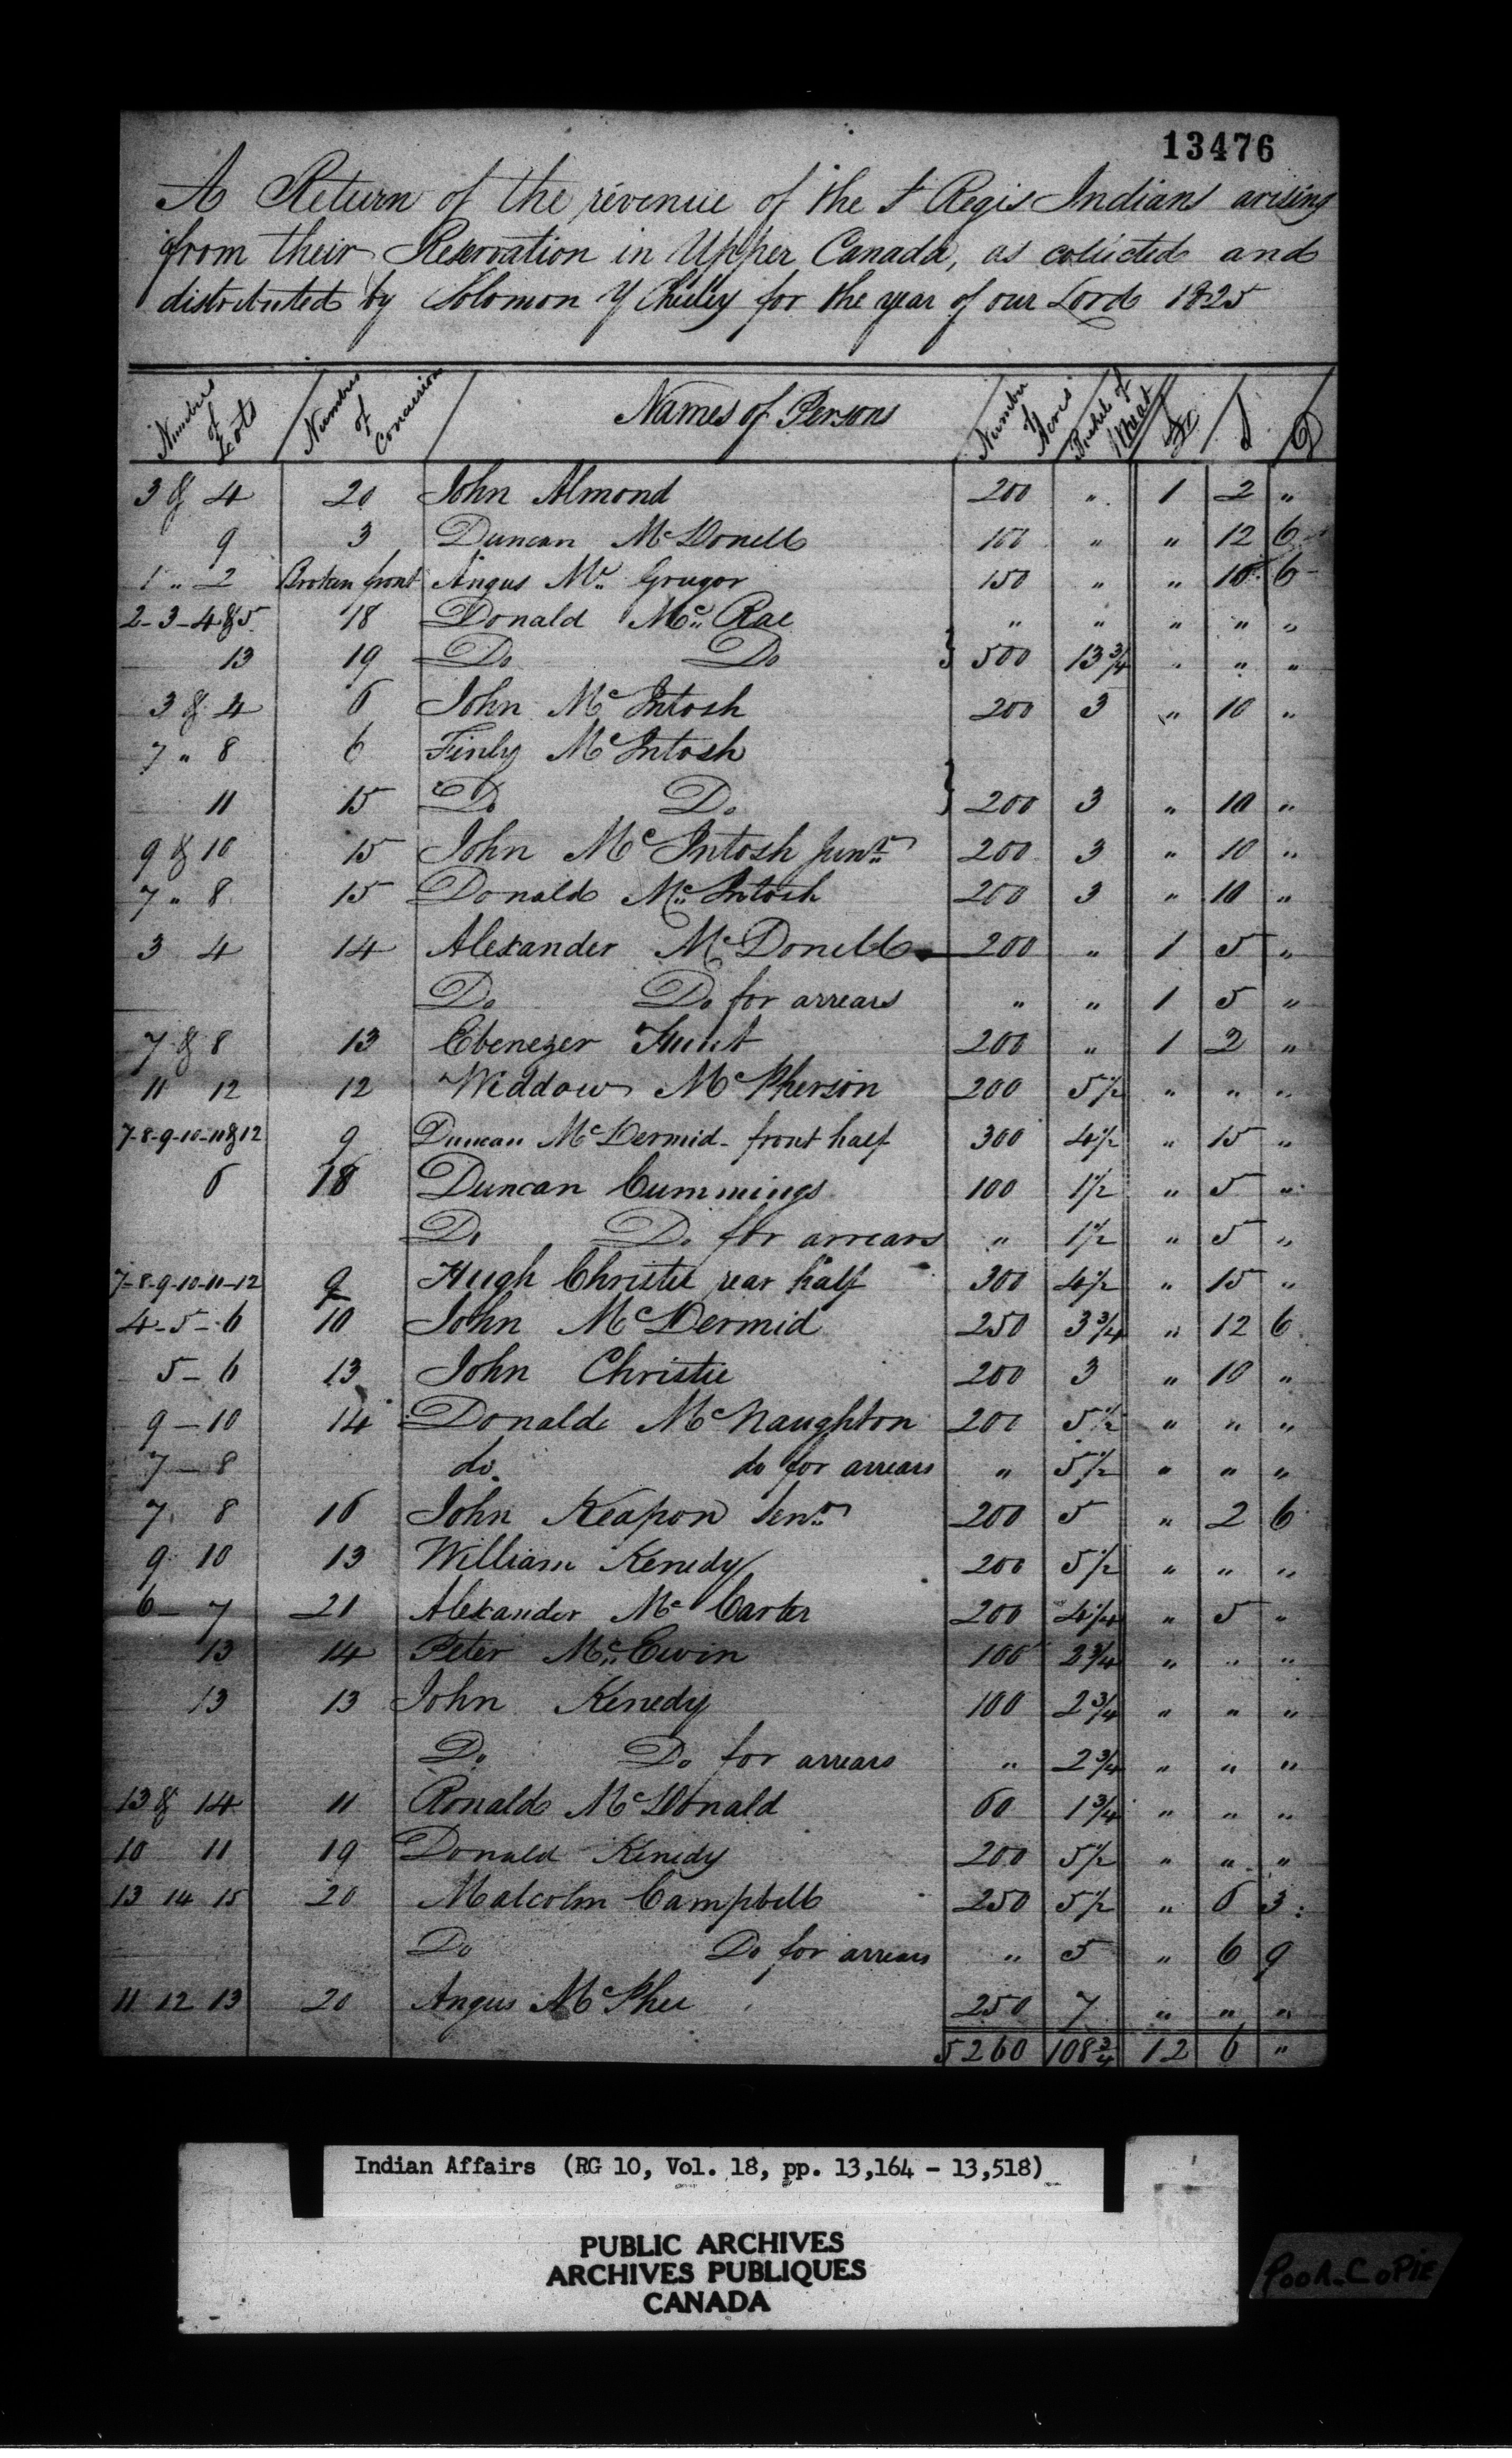 13476
A Return of the revenue of the St Regis Indians arising
from their Reservation in Upper Canada, as collected and
distributed by Solomon Y Chesley for the year of our Lord 1825
Number of Lots | Number of Concession | Names of Persons | Number of Acres | Bushel of Wheat | £ | S | D
3 & 4 | 20 | John Almond | 200 | " | 1 | 2 | "
9 | 3 | Duncan McDonell | 100 | " | " | 12 | 6
1 " 2 | Broken front | Angus Mc Grugor | 150 | " | " | 18 | 6
2-3-4&5 | 18 | Donald Mc Rae | " | " | " | " | "
13 | 19 | Do Do } | 500 | 13 3/4 | " | " | "
3 & 4 | 6 | John McIntosh | 200 | 3 | " | 10 | "
7 " 8 | 6 | Finly McIntosh
11 | 15 | Do Do } | 200 | 3 | " | 10 | "
9 & 10 | 15 | John McIntosh Junr | 200 | 3 | " | 10 | "
7 " 8 | 15 | Donald McIntosh | 200 | 3 | " | 10 | "
3 4 | 14 | Alexander McDonell | 200 | " | 1 | 5 | "
Do Do for arrears | " | " | 1 | 5 | "
7 & 8 | 13 | Ebenezer Hunt | 200 | " | 1 | 2 | "
11 12 | 12 | Widdow McPherson | 200 | 5 1/2 | " | " | "
7-8-9-10-11&12 | 9 | Duncan McDermid - front half | 300 | 4 1/2 | " | 15 | "
6 | 18 | Duncan Cummings | 100 | 1 1/2 | " | 5 | "
Do Do for arrears | " | 1 1/2 | " | 5 | "
7-8-9-10-11-12 | 9 | Hugh Christie rear half | 300 | 4 1/2 | " | 15 | "
4-5-6 | 10 | John McDermid | 250 | 3 3/4 | " | 12 | 6
5-6 | 13 | John Christie | 200 | 3 | " | 10 | "
9-10 | 14 | Donald McNaughton | 200 | 5 1/2 | " | " | "
7-8 | do do for arrears | " | 5 1/2 | " | " | "
7 8 | 16 | John Keapon Senr | 200 | 5 | " | 2 | 6
9 10 | 13 | William Kenedy | 200 | 5 1/2 | " | " | "
6-7 | 21 | Alexander McCarter | 200 | 4 1/4 | " | 5 | "
13 | 14 | Peter McEwin | 100 | 2 3/4 | " | " | "
13 | 13 | John Kenedy | 100 | 2 3/4 | " | " | "
Do Do for arrears | " | 2 3/4 | " | " | "
13 & 14 | 11 | Ronald McDonald | 60 | 1 3/4 | " | " | "
10 11 | 19 | Donald Kenedy | 200 | 5 1/2 | " | " | "
13 14 15 | 20 | Malcolm Campbell | 250 | 5 1/2 | " | 6 | 3
Do Do for arrears | " | 5 | " | 6 | 9
11 12 13 | 20 | Angus McPhee | 250 | 7 | " | " | "
5260 | 108 3/4 | 12 | 6 | "
Indian Affairs (RG 10, Vol. 18, pp. 13,164 - 13,518)
PUBLIC ARCHIVES
ARCHIVES PUBLIQUES
CANADA
POOR COPIE